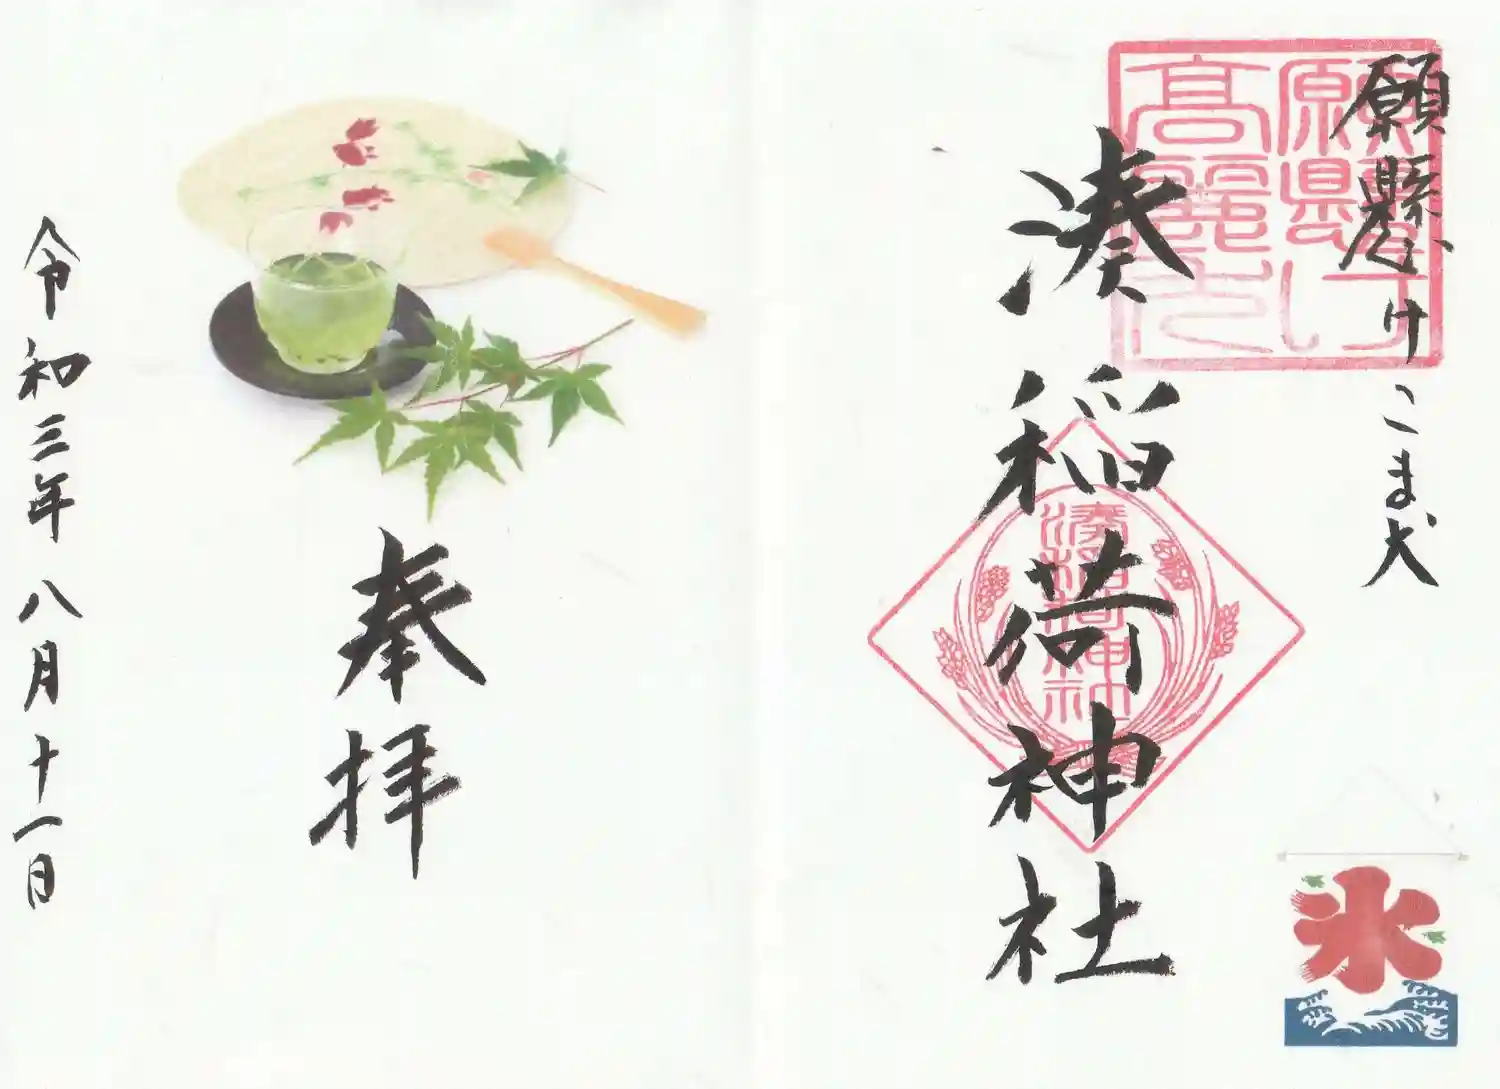 願懸けこま犬
願懸け高麗犬
湊稲荷神社
湊稲荷神社
氷
奉拝
令和三年八月十一日